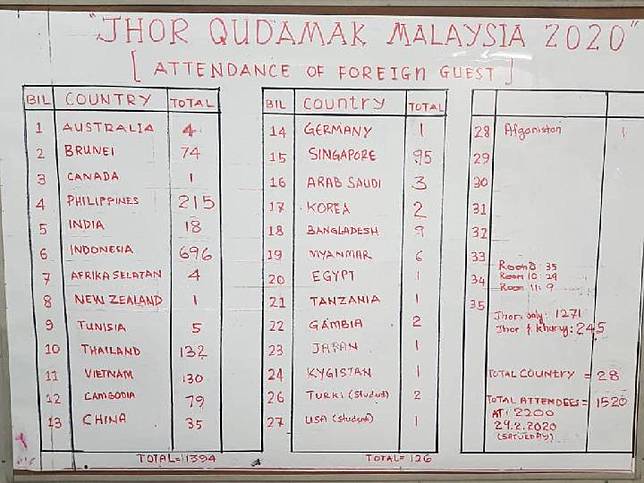 "JHOR QUDAMAK MALAYSIA 2020"
[ATTENDANCE OF FOREIGN GUEST]
BIL COUNTRY TOTAL
1 AUSTRALIA 4
2 BRUNEI 74
3 CANADA 1
4 PHILIPPINES 215
5 INDIA 18
6 INDONESIA 696
7 AFRIKA SELATAN 4
8 NEW ZEALAND 1
9 TUNISIA 5
10 THAILAND 132
11 VIETNAM 130
12 CAMBODIA 79
13 CHINA 35
TOTAL=1394
BIL COUNTRY TOTAL
14 GERMANY 1
15 SINGAPORE 95
16 ARAB SAUDI 3
17 KOREA 2
18 BANGLADESH 9
19 MYANMAR 6
20 EGYPT 1
21 TANZANIA 1
22 GAMBIA 2
23 JAPAN 1
24 KYGISTAN 1
26 TURKI (Student) 2
27 USA (Student) 1
TOTAL= 126
28 Afganistan 1
29
30
31
32
33
34
35
Room 8: 35
Room 10: 29
Room 11: 9
Jhor only: 1271
Jhor & khuruj: 245
TOTAL COUNTRY = 28
TOTAL ATTENDEES = 1520
AT: 2200
29.2.2020
(SATURDAY)